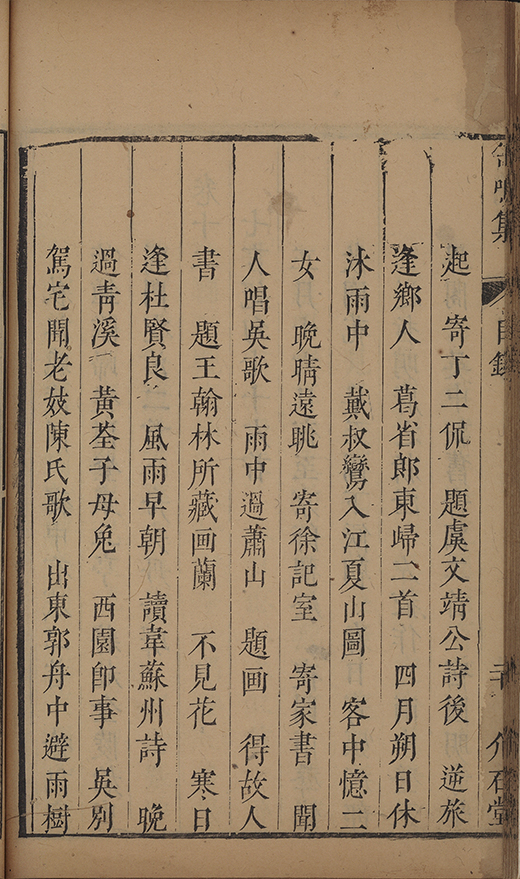 起　寄丁二侃　題虞文靖公詩後　逆旅
逢鄉人　葛省郎東歸二首　四月朔日休
沐雨中　戴叔鸞入江夏山圖　客中憶二
女　晚晴遠眺　寄徐記室　寄家書　聞
人唱吳歌　雨中過蕭山　題画　得故人
書　題王翰林所藏画蘭　不見花　寒日
逢杜賢良　風雨早朝　讀韋蘇州詩　晚
過青溪　黃荃子母兔　西園即事　吳別
駕宅聞老妓陳氏歌　出東郭舟中避雨樹
鳴集　目錄　介石堂